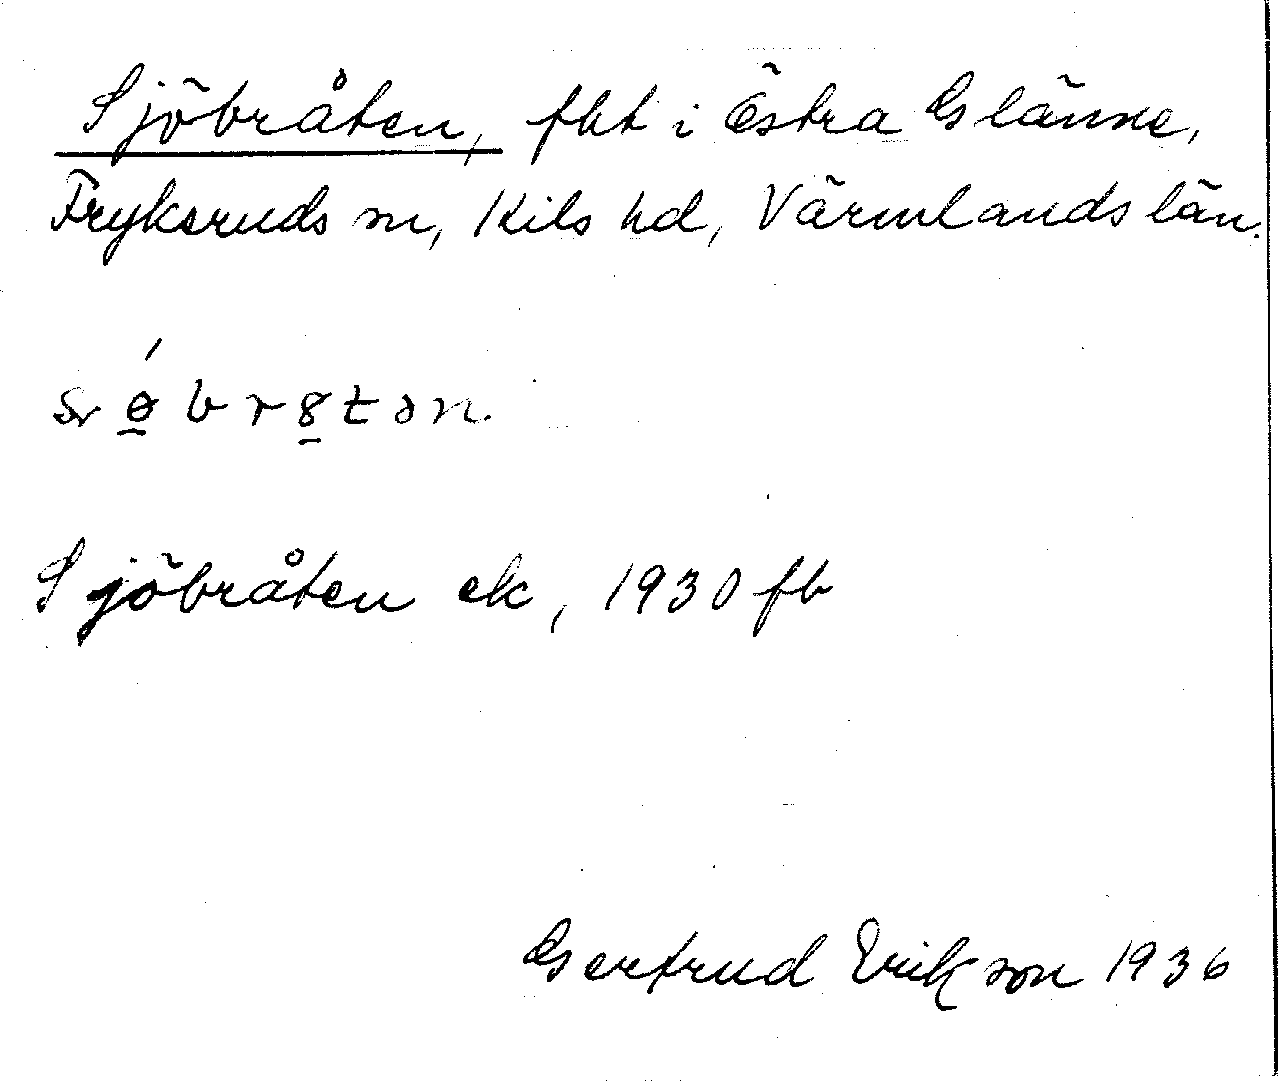 Sjöbråten, fht i Östra Glänne,
Fryksruds sn, Kils hd, Värmlands län.
Sjöbråten ek, 1930 fb
Gertrud Erikson 1936